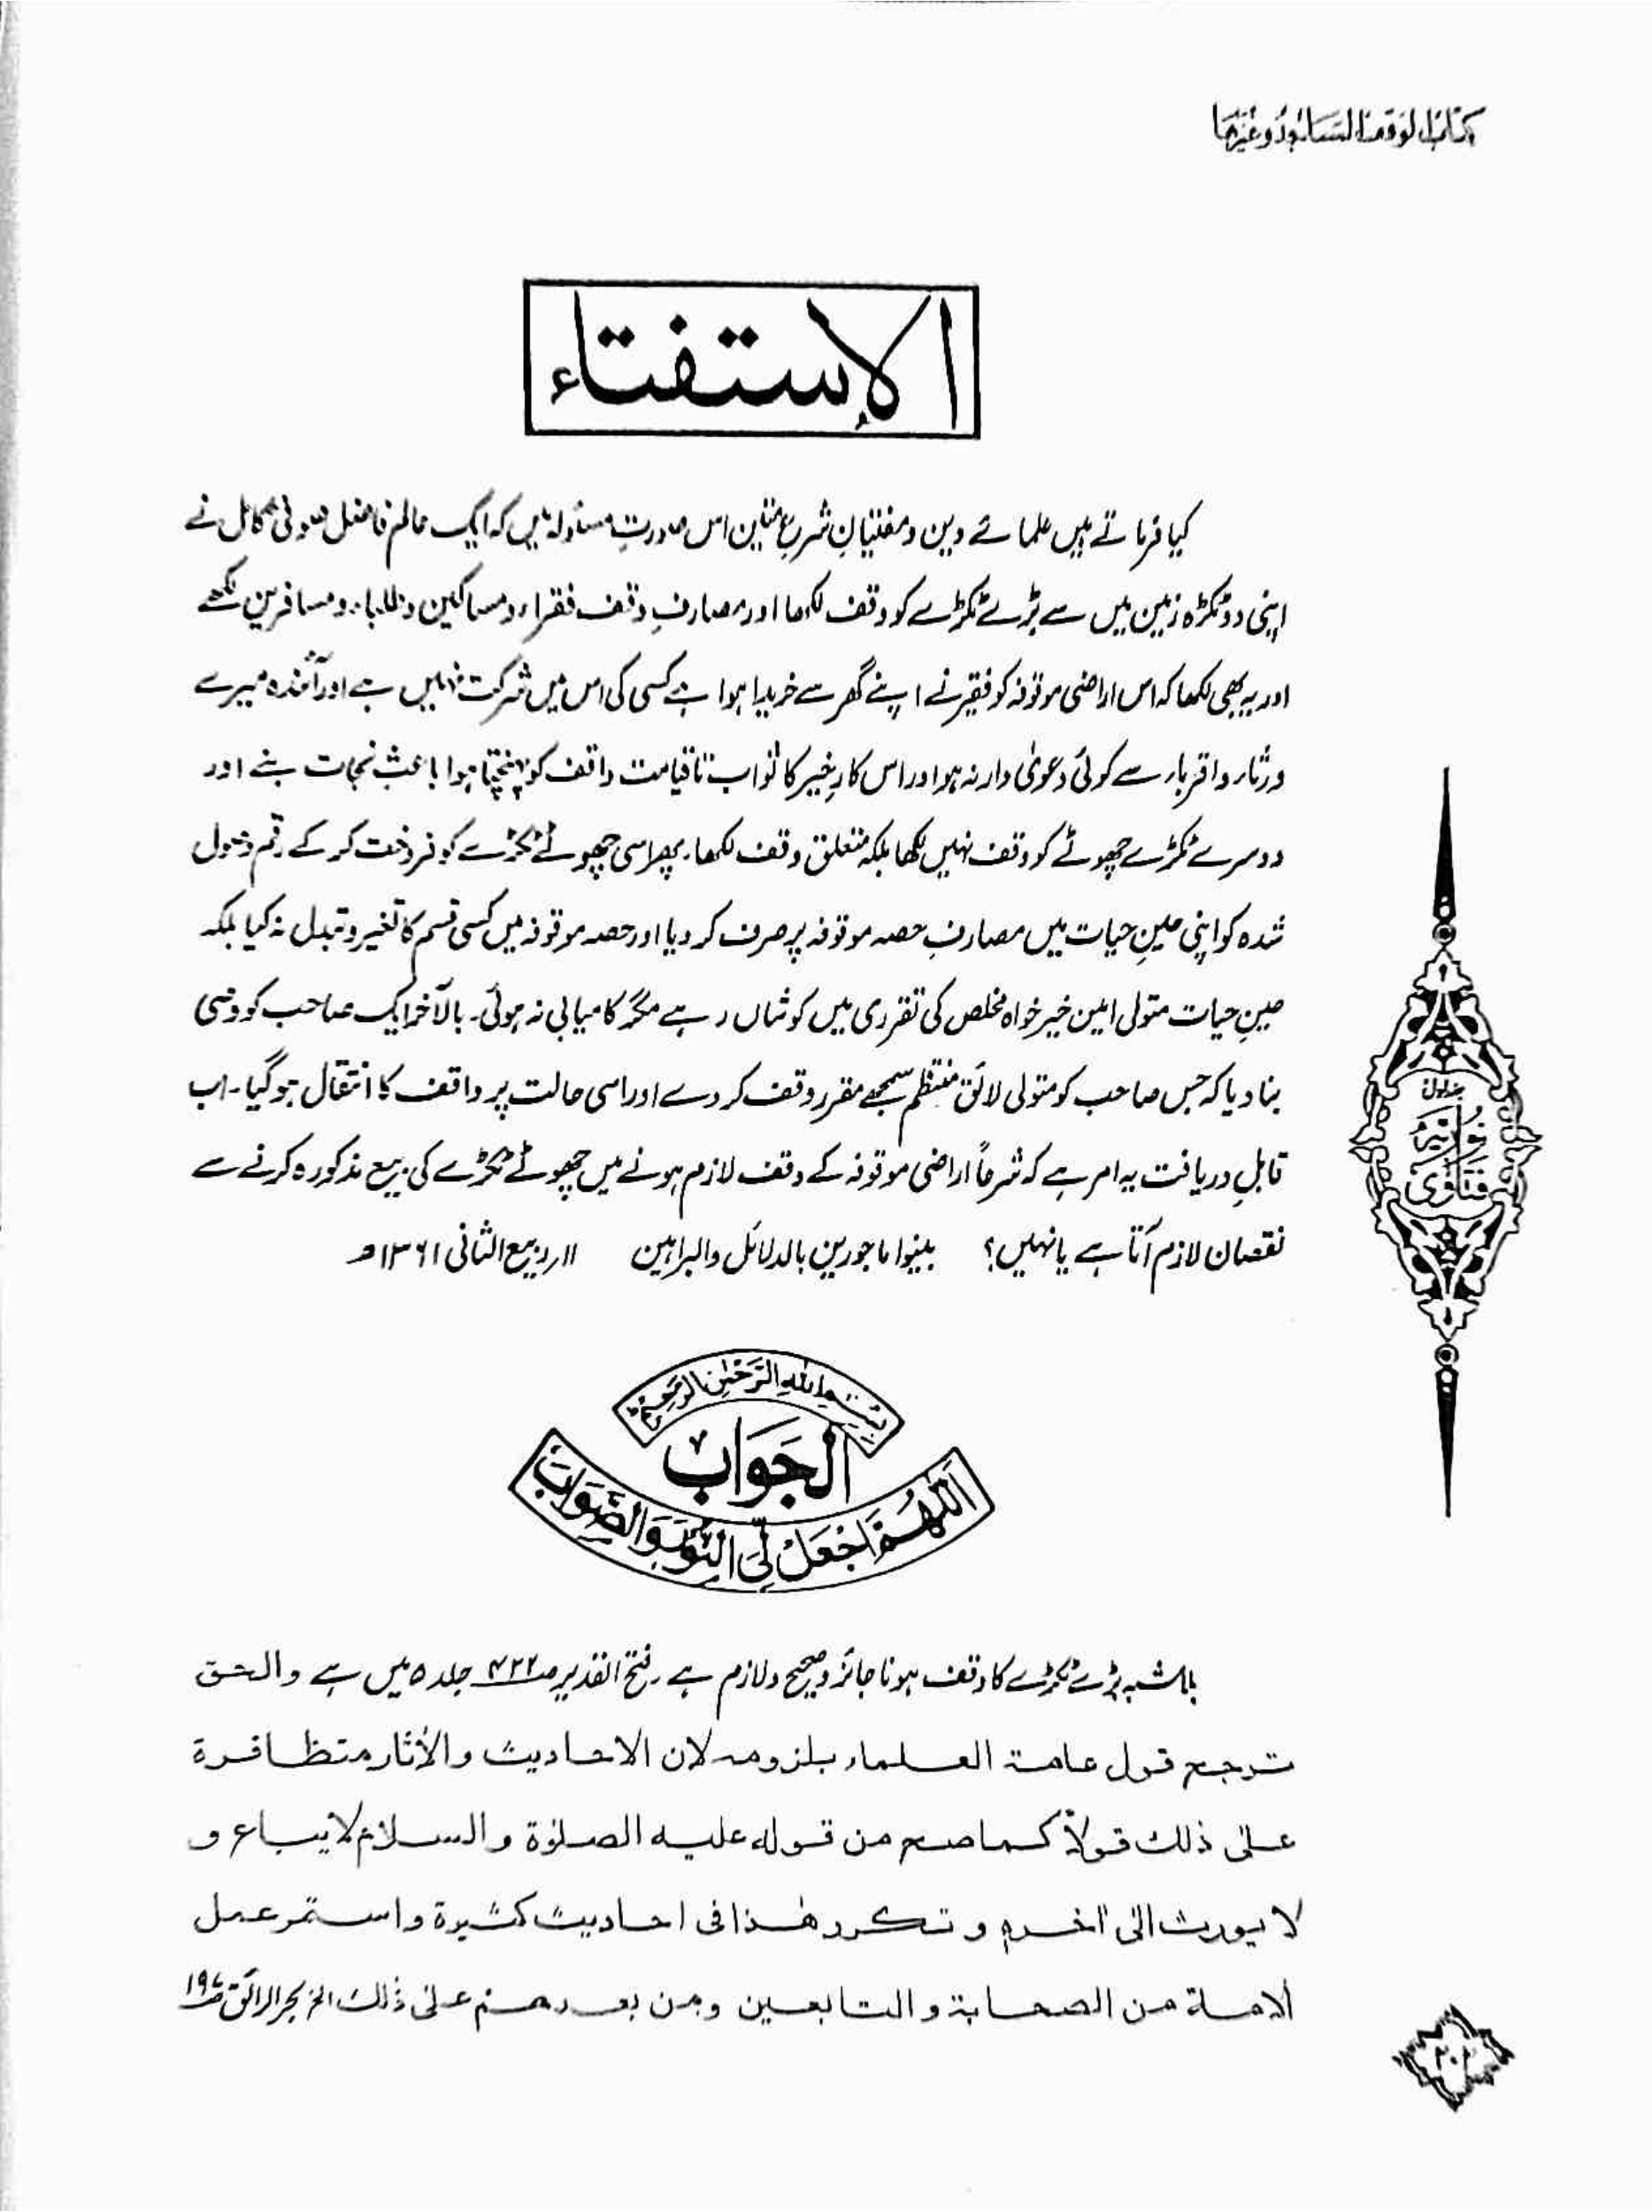 کتاب الوقف المساجد وغیرھا
الاستفتاء
کیا فرماتے ہیں علمائے دین و مفتیانِ شرعِ متین اس صورتِ مسئولہ میں کہ ایک عالم فاضل صوفی کامل نے
اپنی دو ٹکڑہ زمین میں سے بڑے ٹکڑے کو وقف لکھا اور مصارفِ وقف فقراء و مساکین و طلباء و مسافرین لکھے
اور یہ بھی لکھا کہ اس اراضی موقوفہ کو فقیر نے اپنے گھر سے خریدا ہوا ہے کسی کی اس میں شرکت نہیں ہے اور آئندہ میرے
ورثاء و اقرباء سے کوئی دعویٰ دار نہ ہو اور اس کارِ خیر کا ثواب تا قیامت واقف کو پہنچتا ہوا باعث نجات بنے اور
دوسرے ٹکڑے چھوٹے کو وقف نہیں لکھا بلکہ متعلق وقف لکھا۔ پھر اسی چھوٹے ٹکڑے کو فروخت کر کے رقم وصول
شدہ کو اپنی حینِ حیات میں مصارفِ حصہ موقوفہ پر صرف کر دیا اور حصہ موقوفہ میں کسی قسم کا تغیر و تبدل نہ کیا بلکہ
حینِ حیات متولی امین خیر خواہ مخلص کی تقرری میں کوشاں رہے مگر کامیابی نہ ہوئی۔ بالآخر ایک صاحب کو وصی
بنا دیا کہ جس صاحب کو متولی لائق منتظم سمجھے مقرر وقف کر دے اور اسی حالت پر واقف کا انتقال ہو گیا۔ اب
قابلِ دریافت یہ امر ہے کہ شرعاً اراضی موقوفہ کے وقف لازم ہونے میں چھوٹے ٹکڑے کی بیع مذکورہ کرنے سے
نقصان لازم آتا ہے یا نہیں؟ بینوا ماجورین بالدلائل والبراہین ۱۱؍ربیع الثانی ۱۳۶۱ھ
جلد اول
فتاوٰی نوریہ
بسم اللہ الرحمٰن الرحیم
الجواب
اللھم اجعل لی النور والصواب
بلاشبہ بڑے ٹکڑے کا وقف ہونا جائز و صحیح و لازم ہے۔ فتح القدیر ص۴۲۲ جلد ۵ میں ہے والحق
ترجح قول عامة العلماء بلزومہ لان الاحادیث والأثار متظافرة
علٰی ذلك قولاً کما صح من قولہ علیہ الصلوٰة والسلام لا یباع و
لا یورث الٰی اٰخرہٖ و تکرر ھٰذا فی احادیث کثیرة واستمر عمل
الامة من الصحابة والتابعین ومن بعدھم علٰی ذٰلك الخ بحر الرائق ص۱۹۷